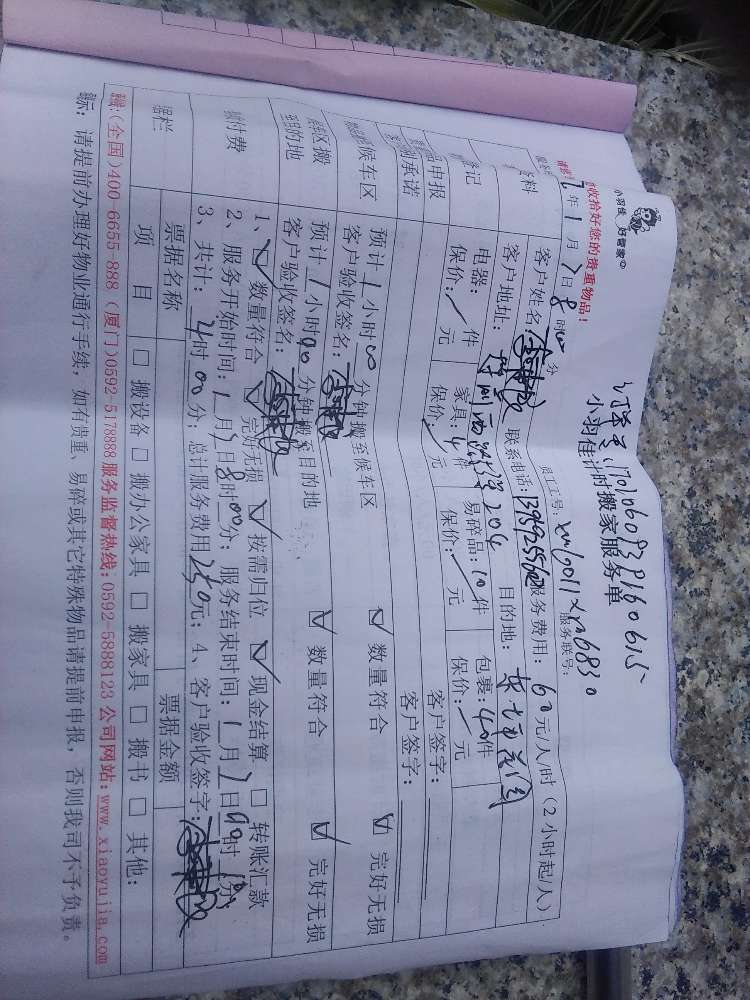 小羽佳 好管家
收拾好您的贵重物品!
小羽佳计时搬家服务单
员工工号: xm6011xm6830
服务联号:
年 1 月 7 日 8 时00分
客户姓名:
联系电话:
服务费用: 60 元/人/时 (2小时起/人)
客户地址:
204
目的地:
登记
电器: / 件
家具: 4 件
易碎品: 10 件
包裹: 40 件
保价: / 元
保价: / 元
保价: / 元
保价: / 元
申报
客户签字:
承诺
客户签字:
候车区
预计 1 小时 00 分钟搬至候车区
客户验收签名:
☑ 数量符合
☑ 完好无损
的地
预计 1 小时 00 分钟搬至目的地
客户验收签名:
☑ 数量符合
☑ 完好无损
付费
1、☑ 数量符合 ☑ 完好无损 ☑ 按需归位 ☑ 现金结算 □ 转账汇款
2、服务开始时间: 1 月 7 日 8 时 00 分; 服务结束时间: 1 月 7 日
3、共计: 时 00 分; 总计服务费用 250 元; 4、客户验收签字:
票据名称
票据金额
项 目
□ 搬设备 □ 搬办公家具 □ 搬家具 □ 搬书 □ 其他:
(全国)400-6655-888 (厦门)0592-5178888 服务监督热线:0592-5888123 公司网站:www.xiaoyujia.com
示: 请提前办理好物业通行手续, 如有贵重、易碎或其它特殊物品请提前申报, 否则我司不予负责。